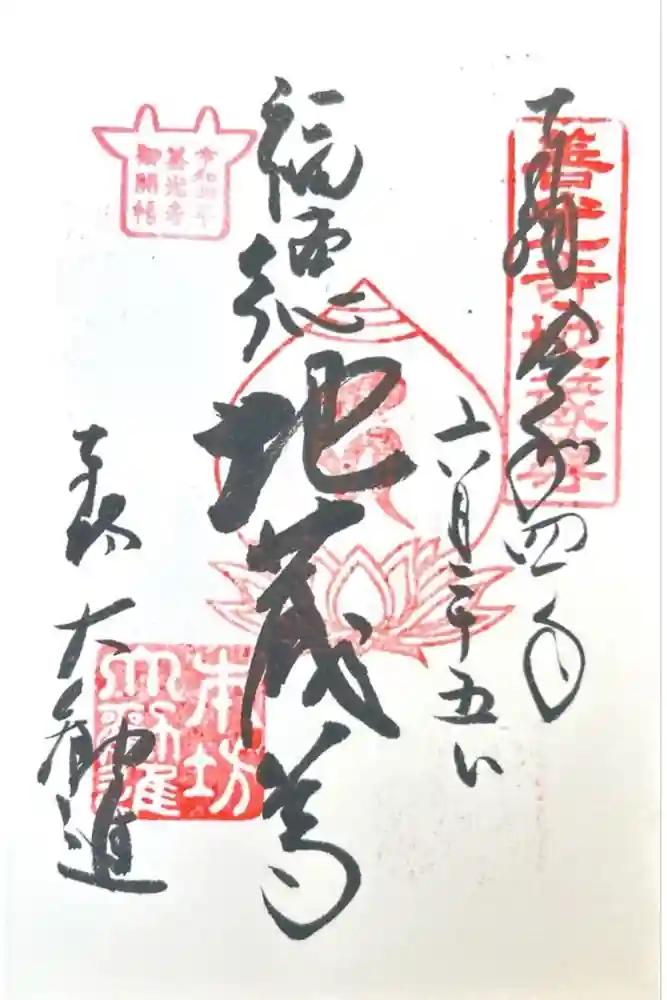 奉拝 令和四年
六月二十五日
善光寺地蔵尊
地蔵尊
令和四年
善光寺
御開帳
大勧進
本坊
大勧進